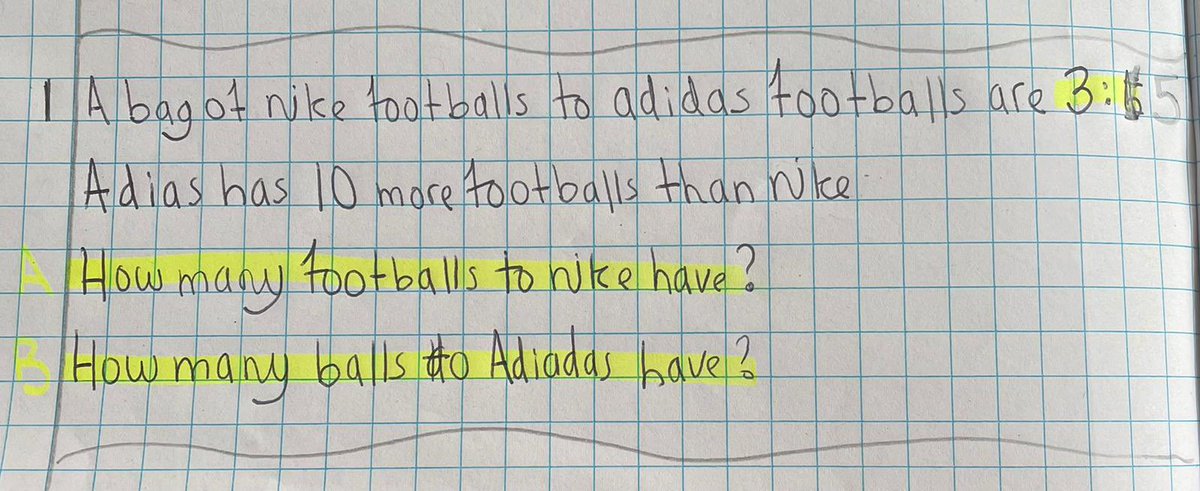 1 A bag of nike footballs to adidas footballs are 3:5
Adias has 10 more footballs than nike
A How many footballs to nike have?
B How many balls to Adiadas have?